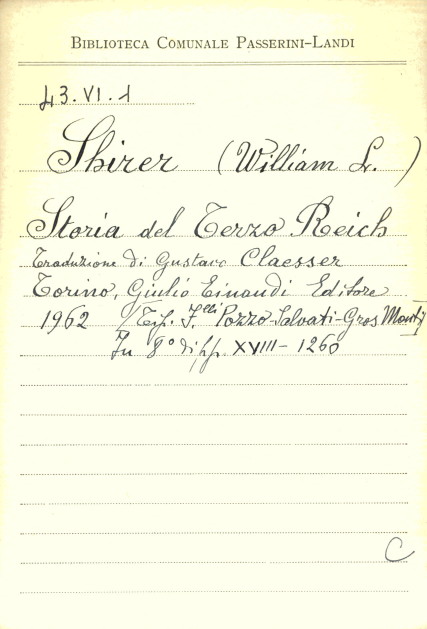 BIBLIOTECA COMUNALE PASSERINI-LANDI
43.VI.1
Shirer (William L.)
Storia del Terzo Reich
Traduzione di Gustavo Claesser
Torino, Giulio Einaudi Editore
1962 (Tip. F.lli Pozzo-Salvati-Gros Monti)
In 8° di pp. XVIII-1260
C